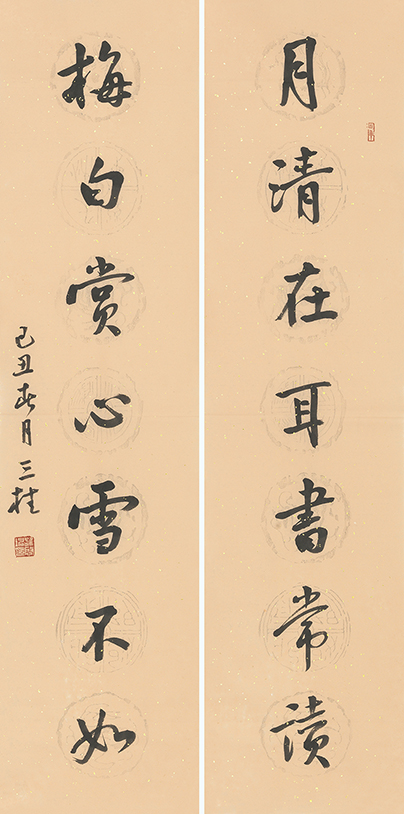 月清在耳書常讀
梅白赏心雪不如
己丑春月三桂